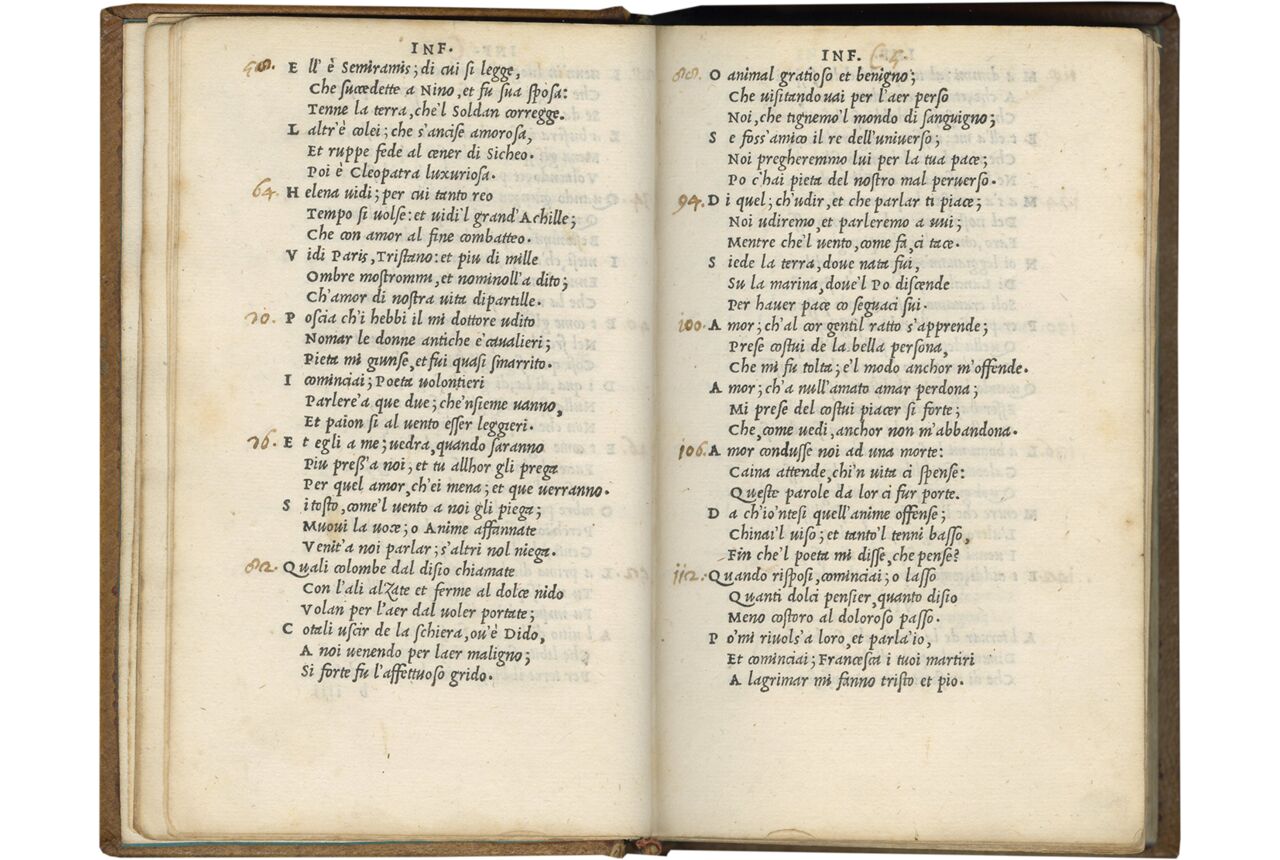 INF.
58. E ll' è Semiramis; di cui si legge,
Che succedette a Nino, et fu sua sposa:
Tenne la terra, che'l Soldan corregge.
L altr'è colei; che s'ancise amorosa,
Et ruppe fede al cener di Sicheo.
Poi è Cleopatra luxuriosa.
64. H elena uidi; per cui tanto reo
Tempo si uolse: et uidi'l grand'Achille;
Che con amor al fine combatteo.
V idi Paris, Tristano: et piu di mille
Ombre mostrommi, et nominoll'a dito;
Ch'amor di nostra uita dipartille.
70. P oscia ch'i hebbi il mi dottore udito
Nomar le donne antiche e caualieri;
Pieta mi giunse, et fui quasi smarrito.
I cominciai; Poeta uolontieri
Parlere'a que due; che'nsieme uanno,
Et paion si al uento esser leggieri.
76. E t egli a me; uedra, quando saranno
Piu press'a noi; et tu allhor gli prega
Per quel amor, ch'ei mena; et que uerranno.
S i tosto, come'l uento a noi gli piega;
Muoui la uoce; o Anime affannate
Venit'a noi parlar; s'altri nol niega.
82. Quali colombe dal disio chiamate
Con l'ali alzate et ferme al dolce nido
Volan per l'aer dal uoler portate;
C otali uscir de la schiera, ou'è Dido,
A noi uenendo per laer maligno;
Si forte fu l'affettuoso grido.
INF. C 5.
88. O animal gratioso et benigno;
Che uisitando uai per l'aer perso
Noi, che tignemo'l mondo di sanguigno;
S e foss'amico il re dell'uniuerso;
Noi pregheremmo lui per la tua pace;
Po c'hai pieta del nostro mal peruerso.
94. D i quel; ch'udir, et che parlar ti piace;
Noi udiremo, et parleremo a uui;
Mentre che'l uento, come fa, ci tace.
S iede la terra, doue nata fui,
Su la marina, doue'l Po discende
Per hauer pace co seguaci sui.
100. A mor; ch'al cor gentil ratto s'apprende;
Prese costui de la bella persona,
Che mi fu tolta; e'l modo anchor m'offende.
A mor; ch'a null'amato amar perdona;
Mi prese del costui piacer si forte;
Che, come uedi, anchor non m'abbandona.
106. A mor condusse noi ad una morte:
Caina attende, chi'n uita ci spense:
Queste parole da lor ci fur porte.
D a ch'io'ntesi quell'anime offense;
Chinai'l uiso; et tanto'l tenni basso,
Fin che'l poeta mi disse, che pense?
112. Quando risposi, cominciai; o lasso
Quanti dolci pensier, quanto disio
Meno costoro al doloroso passo.
P o'mi riuols'a loro, et parla'io,
Et cominciai; Francesca i tuoi martiri
A lagrimar mi fanno tristo et pio.